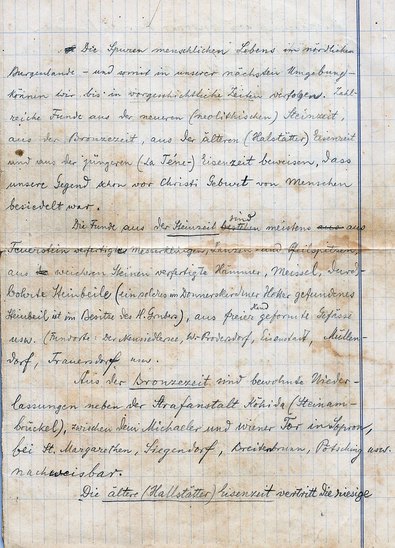 Die Spuren menschlichen Lebens im nördlichen
Burgenlande - und somit in unserer nächsten Umgebung -
können wir bis in vorgeschichtliche Zeiten verfolgen. Zahl-
reiche Funde aus der neueren (neolithischen) Steinzeit,
aus der Bronzezeit, aus der älteren (Hallstätter) Eisenzeit
und aus der jüngeren (La Tene-) Eisenzeit beweisen, dass
unsere Gegend schon vor Christi Geburt von Menschen
besiedelt war.
Die Funde aus der Steinzeit bestehen sind meistens aus aus
Feuerstein verfertigte Messerklingen, Lanzen- und Pfeilspitzen,
aus weicheren Steinen verfertigte Hämmer, Meissel, durch-
bohrte Steinbeile (ein solches im Donnerskirchner Hotter gefundenes
Steinbeil ist im Besitze des H. ), aus freier Hand geformte Gefässe
usw. (Fundorte: der Neusiedlersee, Wr. Prodersdorf, Eisenstadt, Müllen-
dorf, Frauersdorf usw.
Aus der Bronzezeit sind bewohnte Nieder-
lassungen neben der Strafanstalt Köhida (Steinam-
brückel), zwischen dem Michaeler und wiener Tor in Sopron,
bei St. Margarethen, Siegendorf, Kreitenbrunn, Pötsching usw.
nachweisbar.
Die ältere (Hallstätter) Eisenzeit vertritt die riesige